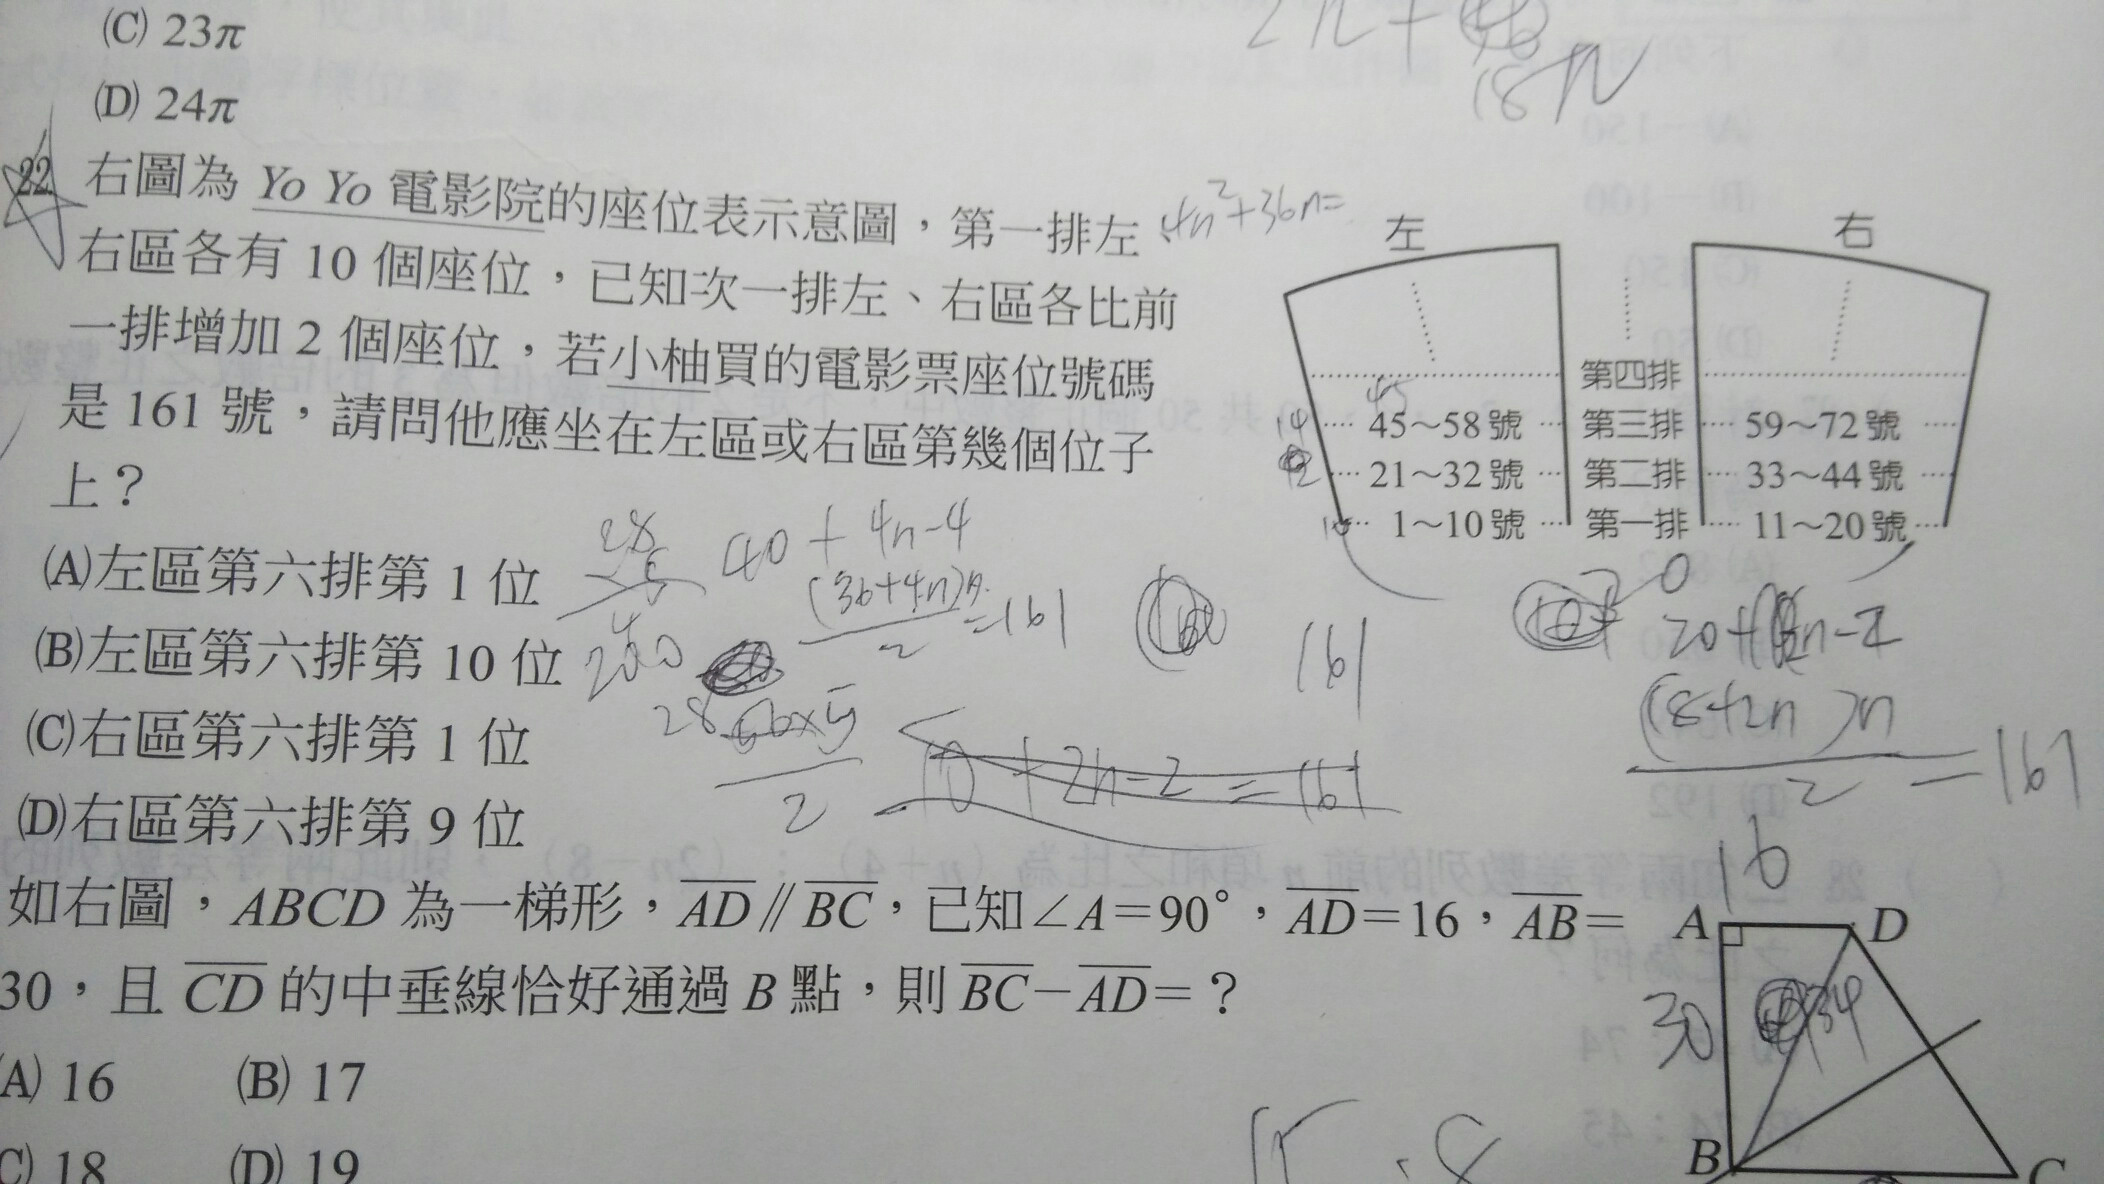 (C) 23π
(D) 24π
22. 右圖為 Yo Yo 電影院的座位表示意圖，第一排左、
右區各有 10 個座位，已知次一排左、右區各比前
一排增加 2 個座位，若小柚買的電影票座位號碼
是 161 號，請問他應坐在左區或右區第幾個位子
上？
(A)左區第六排第 1 位
(B)左區第六排第 10 位
(C)右區第六排第 1 位
(D)右區第六排第 9 位
4n²+36n=
左
右
第四排
45
14 45～58 號 第三排 59～72 號
12 21～32 號 第二排 33～44 號
10 1～10 號 第一排 11～20 號
40+4n-4
(36+4n)n
2
=161
161
20+2n-2
(18+2n)n
2
=161
10+2n-2=161
28
2
18n
如右圖，ABCD 為一梯形，AD∥BC，已知∠A＝90°，AD＝16，AB＝
30，且 CD 的中垂線恰好通過 B 點，則 BC－AD＝？
(A) 16 (B) 17
(C) 18 (D) 19
16
A D
30 34
B C